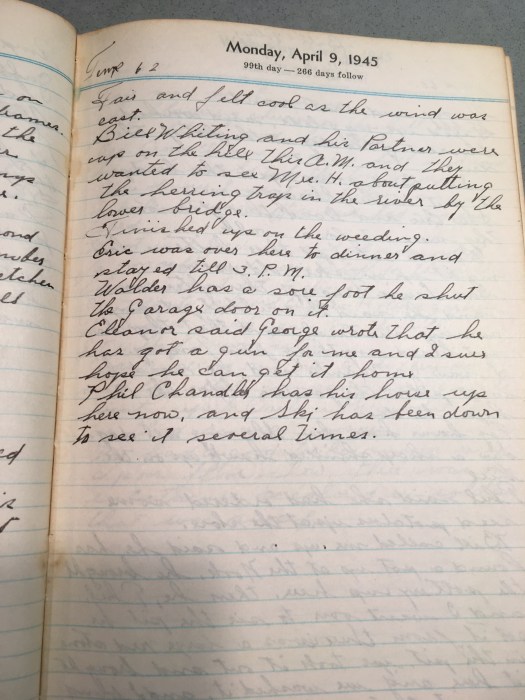 on
frames.
the
Monday, April 9, 1945
99th day — 266 days follow
Temp 62
Fair and felt cool as the wind was
east.
Bill Whiting and his Partner were
up on the hill this A.M. and they
wanted to see Mrs. H. about putting
the herring trap in the river by the
lower bridge.
Finished up on the weeding.
Eric was over here to dinner and
stayed till 3. P.M.
Walder has a sore foot he shut
the Garage door on it.
Eleanor said George wrote that he
has got a gun for me and I sure
hope he can get it home
Phil Chandler has his horse up
here now, and Ski has been down
to see it several Times.